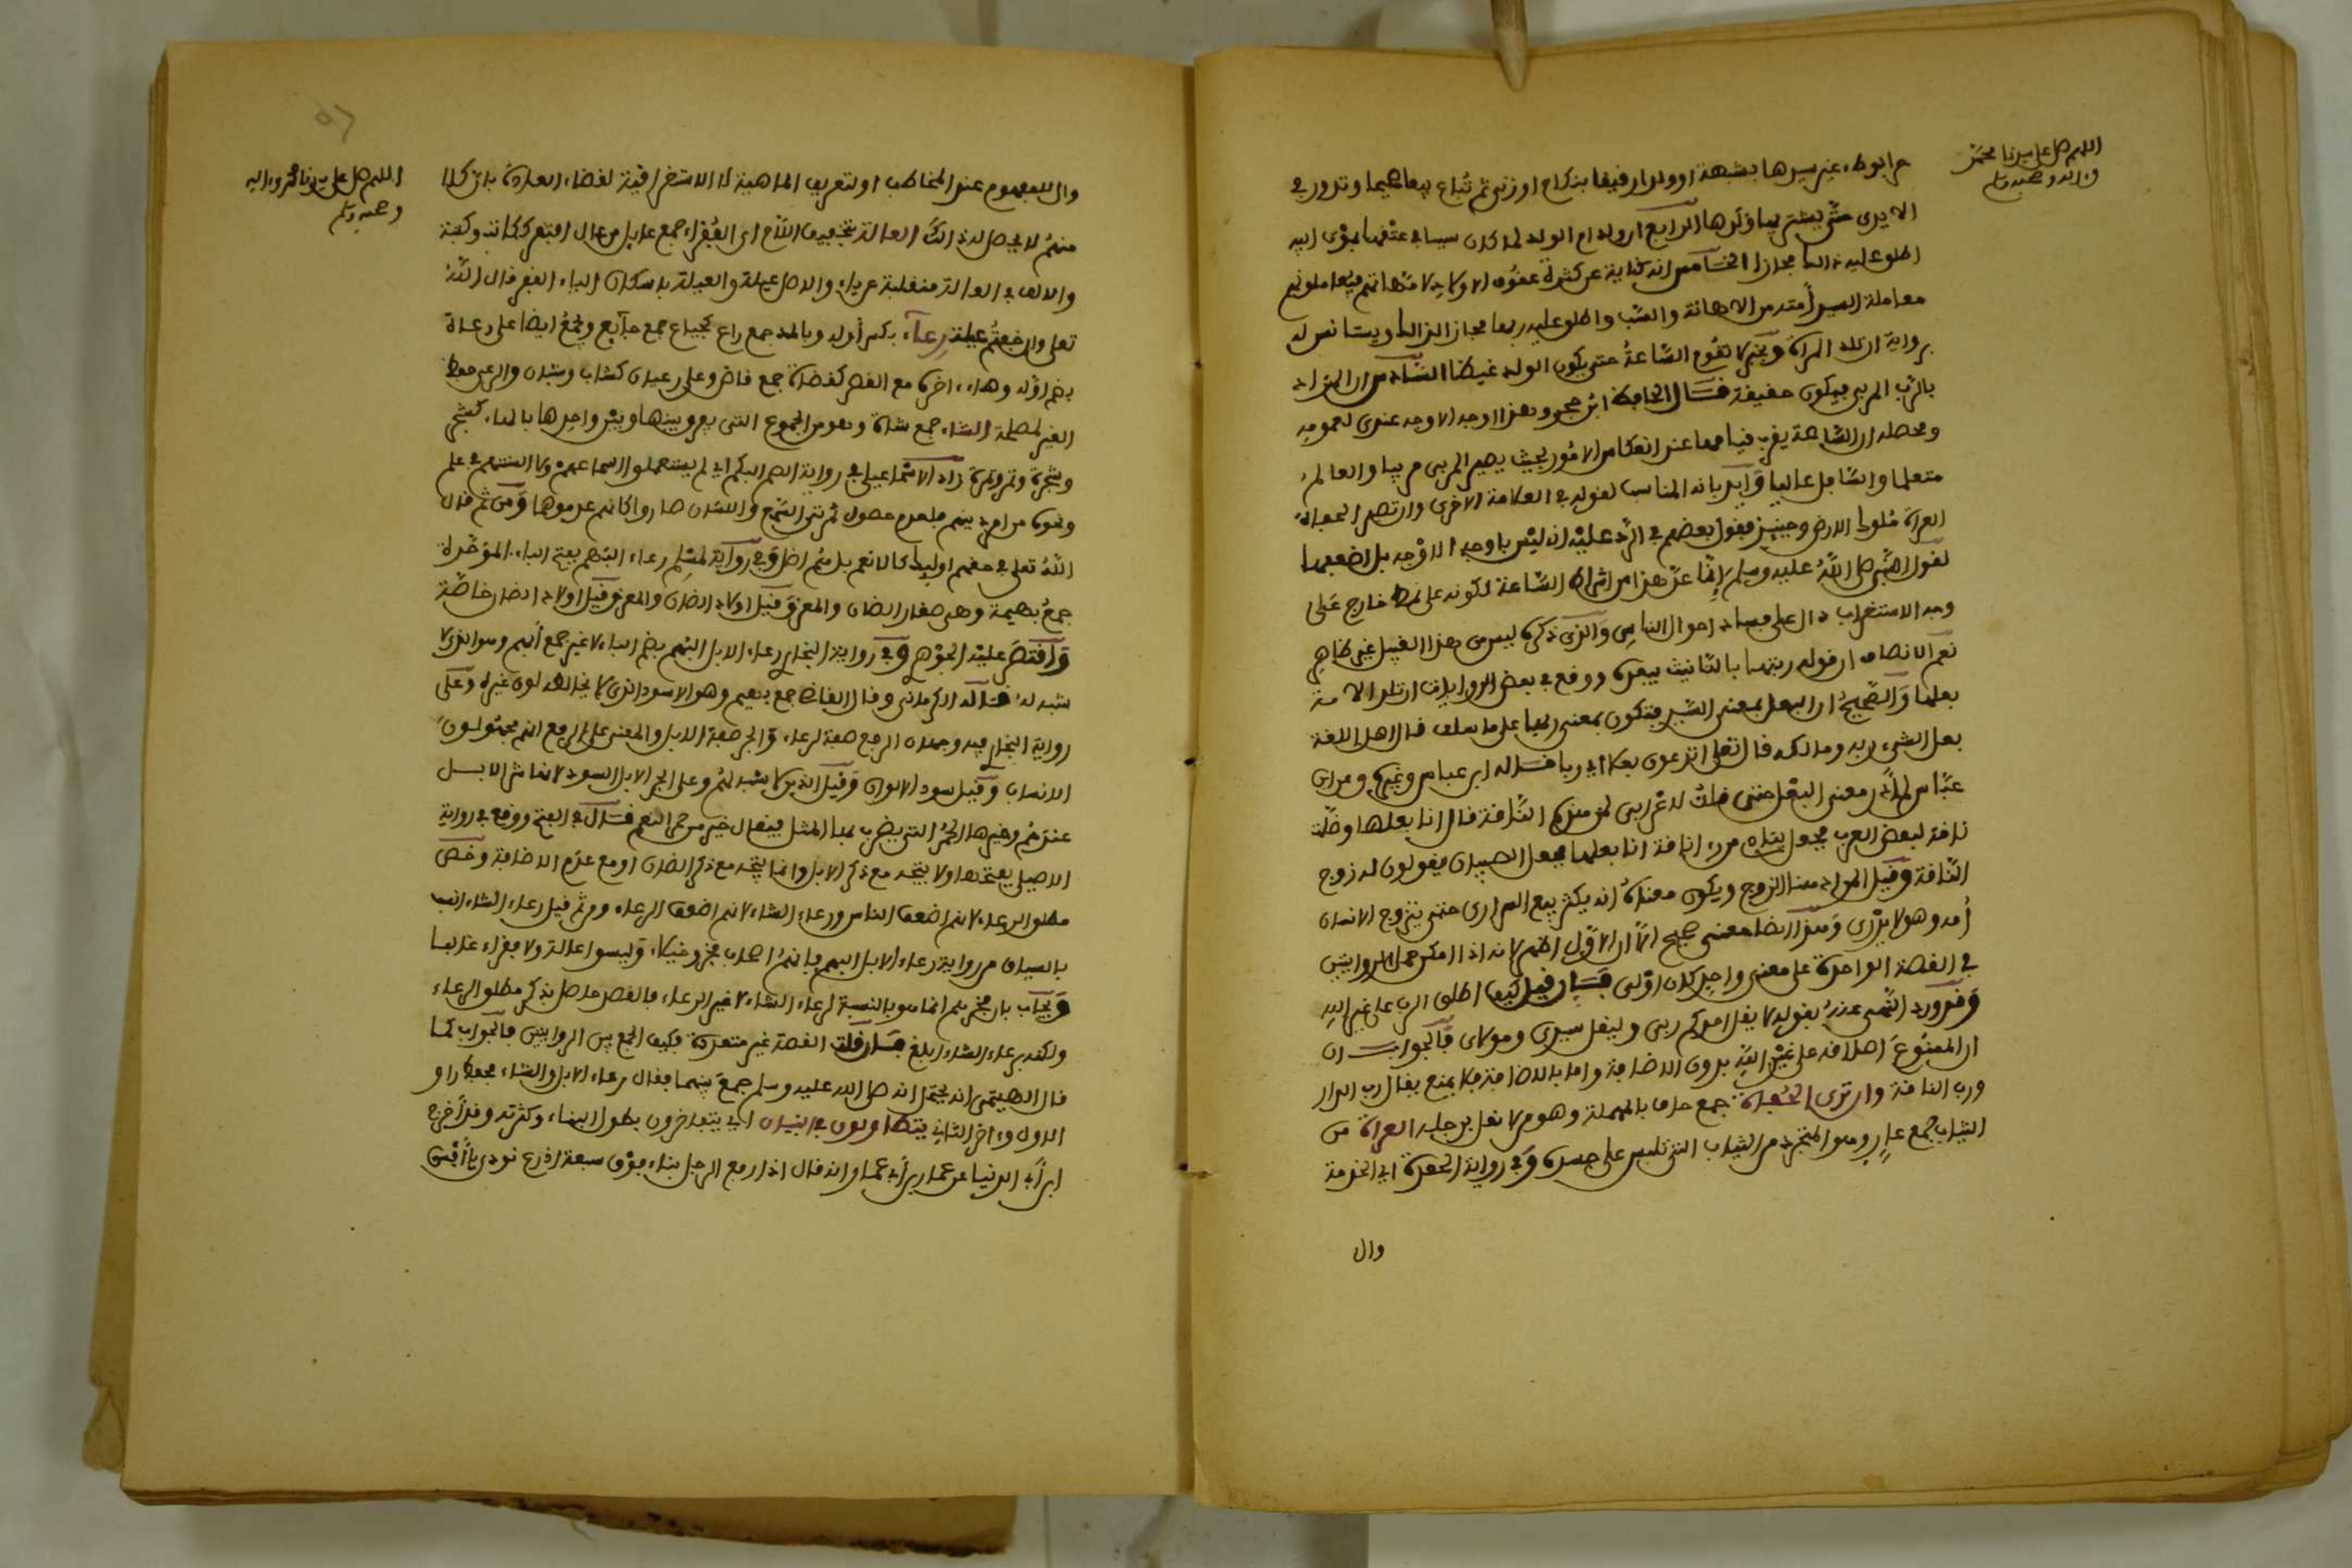 اللهم صل على سيدنا محمد
وءاله وصحبه وسلم
حرا بوطء غير سيدها بشبهة او ولدا رقيقا بنكاح او زنى ثم تباع بيعا صحيحا وتدور في
الايدي حتى يشتريها ولدها الرابع ان ولد ام الولد لما كان سببا في عتقها بموت ابيه
اطلق عليه ذالك مجازا الخامس انه كناية عن كثرة عقوق الاولاد لامهاتهم فيعاملونهم
معاملة السيد أمته من الاهانة والسب واطلق عليه ربها مجازا لذالك ويستانس له
برواية ان تلد المرأة وبخبر لا تقوم الساعة حتى يكون الولد غيظا السادس ان المراد
بالرب المربي فيكون حقيقة قال الحافظ ابن حجر وهذا اوجه الاوجه عندي لعمومه
ومحصله ان الساعة يقرب قيامها عند انعكاس الامور بحيث يصير المربى مربيا والعالم
متعلما والسافل عاليا وايد بانه المناسب لقوله في العلامة الاخرى وان تصير الحفاة
العراة ملوك الارض وحينئذ فقول بعضهم في الرد عليه انه ليس باوجه الاوجه بل اضعفها
لقول النبي صلى الله عليه وسلم إنما عد هذا من اشراط الساعة لكونه على نمط خارج على
وجه الاستغراب دال على فساد احوال الناس والذي ذكره ليس من هذا القبيل غير ظاهر
نعم الانصاف ان قوله ربتها بالتانيث يبعده ووقع في بعض الروايات ان تلد الامة
بعلها والصحيح ان البعل بمعنى السيد فتكون بمعنى ربها على ما سلف قال اهل اللغة
بعل الشيء ربه ومالكه قال تعلى اتدعون بعلا اي ربا قاله ابن عباس وغيره وعن ابن
عباس لم أدر معنى البعل حتى قلت لاعرابي لمن هذه الناقة قال انا بعلها وضلت
ناقة لبعض العرب فجعل ينادي من رءا ناقة انا بعلها فجعل الصبيان يقولون له زوج
الناقة وقيل المراد هنا الزوج ويكون معناه انه يكثر بيع السراري حتى يتزوج الانسان
أمه وهو لا يدري وهذا ايضا معنى صحيح الا ان الاول اظهر لانه اذا امكن حمل الروايتين
في القصة الواحدة على معنى واحد كان اولى فإن قيل كيف اطلق الرب على غير الله
وقد ورد النهي عنه بقوله لا يقل احدكم ربي وليقل سيدي ومولاي فالجواب ان
ان الممنوع اطلاقه على غير الله بدون الاضافة واما بالاضافة فلا يمنع يقال رب الدار
ورب الناقة وان ترى الحفاة جمع حاف بالمهملة وهو من لا نعل برجله العراة من
الثياب جمع عار وهو المتجرد من الثياب التي تلبس على جسده وفي رواية الحفدة اي الخدمة
وال
اللهم صل على سيدنا محمد وءاله
وصحبه وسلم
وال للمعهوم عند المخاطب او لتعريف الماهية لا الاستغراقية لقضاء العادة بان كلا
منهم لا يحصل له ذالك العالة بتخفيف اللام اي الفقراء جمع عايل من عال افتقر ككاتب وكتبة
والالف في العالة منقلبة عن ياء والاصل عيلة والعيلة باسكان الياء الفقر قال الله
تعلى وان خفتم عيلة رعاء بكسر أوله وبالمد جمع راع كجياع جمع جايع ويجمع ايضا على رعاة
بضم اوله وهاء ءاخره مع القصر كقضاة جمع قاض وعلى رعيان كشاب وشبان والرعي حفظ
الغير لمصلحة الشاء جمع شاة وهو من الجموع التي يفرق بينها وبين واحدها بالهاء كشجر
وشجرة وتمر وتمرة زاد الاسماعيلي في رواية الصم البكم اي لم يستعملوا اسماعهم ولا السنتهم في علم
ونحوه من امر دينهم فلعدم حصول ثمرتي السمع واللسان صاروا كانهم عدموها ومن ثم قال
الله تعلى في حقهم اوليك كالانعم بل هم اضل وفي رواية لمسلم رعاء البهم بفتح الباء الموحدة
جمع بهيمة وهي صغار الضان والمعز وقيل اولاد الضان والمعز وقيل اولاد الضان خاصة
واقتصر عليه الجوهري وفي رواية البخاري رعاء الابل البهم بضم الباء لا غير جمع أبهم وهو الذي لا
شبه له قاله الكرماني وقال القاضي جمع بهيم وهو الاسود الذي لا يخالطه لون غيره وعلى
رواية البخاري فيه وجهان الرفع صفة لرعاء والجر صفة الابل والمعنى على الرفع انهم مجهولون
الانساب وقيل سود الالوان وقيل الذين لا شبه لهم وعلى الجر الابل السود لانها شر الابل
عندهم وخيرها الحمر التي يضرب بها المثل فيقال خير من حمر النعم قال في الفتح ووقع في رواية
الاصيلي بفتحها ولا يتجه مع ذكر الابل وانما يتجه مع ذكر الضان او مع عدم الاضافة وخص
مطلق الرعاء لانهم اضعف الناس ورعاء الشاء لانهم اضعف الرعاء ومن ثم قيل رعاء الشاء انسب
بالسياق من رواية رعاء الابل البهم فانهم اصحاب فخر وخيلاء وليسوا عالة ولا فقراء غالبا
ويجاب بان فخرهم انما هو بالنسبة لرعاء الشاء لا غير الرعاء فالقصد حاصل بذكر مطلق الرعاء
ولكنه برعاء الشاء ابلغ فإن قلت القصة غير متعددة فكيف الجمع بين الروايتين فالجواب كما
قال الهيتمي انه يحتمل انه صلى الله عليه وسلم جمع بينهما فقال رعاء الابل والشاء فحفظ راو
الاول وءاخر الثاني يتطاولون في البنيان اي يتفاخرون بطول البناء وكثرته وقد أخرج
ابن أبي الدنيا عن عمار بن أبي عمار انه قال اذا رفع الرجل بناء فوق سبعة اذرع نودي يا أفسق